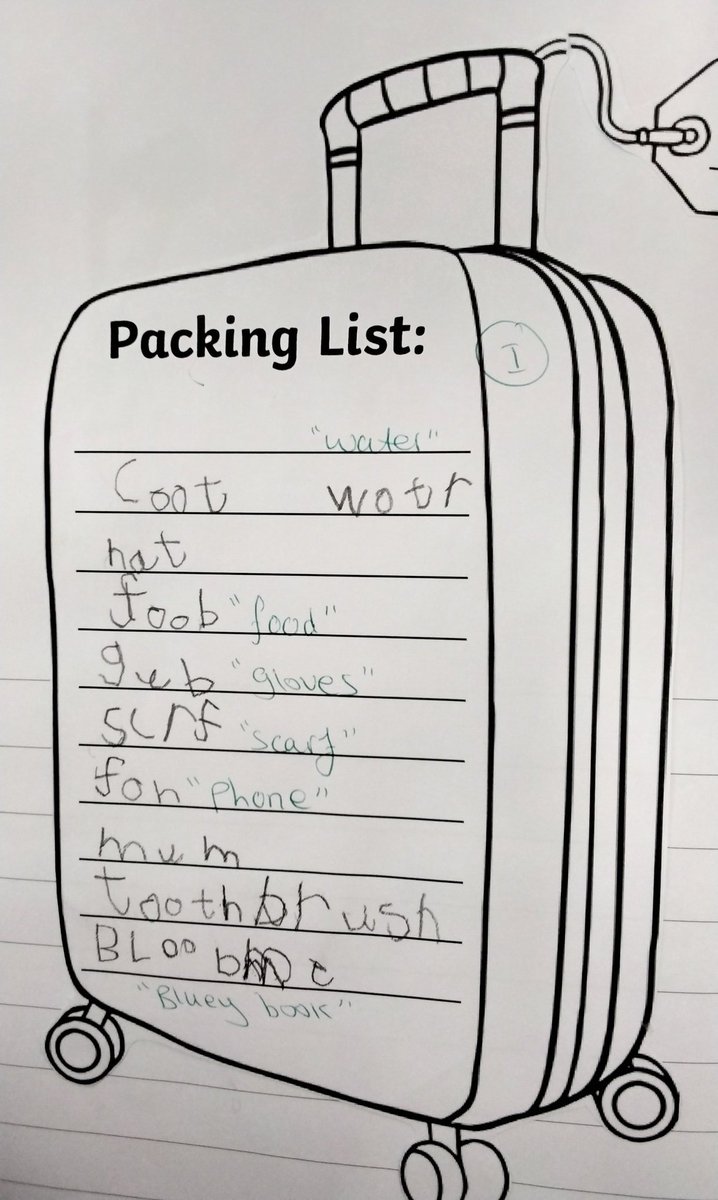 Packing List:
I
"water"
Coot wotr
hat
foob "food"
gub "gloves"
scrf "scarf"
fon "Phone"
mum
toothbrush
BLoo b c
"Bluey book"